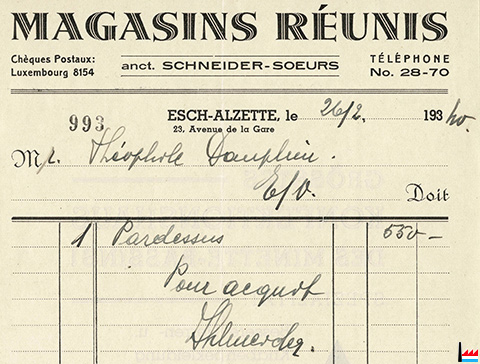 MAGASINS RÉUNIS
Chèques Postaux:
Luxembourg 8154
anct. SCHNEIDER-SOEURS
TÉLÉPHONE
No. 28-70
993
ESCH-ALZETTE, le 26/2. 193 40.
23, Avenue de la Gare
Mr. Théophile Dauphin.
E/V. Doit
1 Pardessus 550 —
Pour acquit